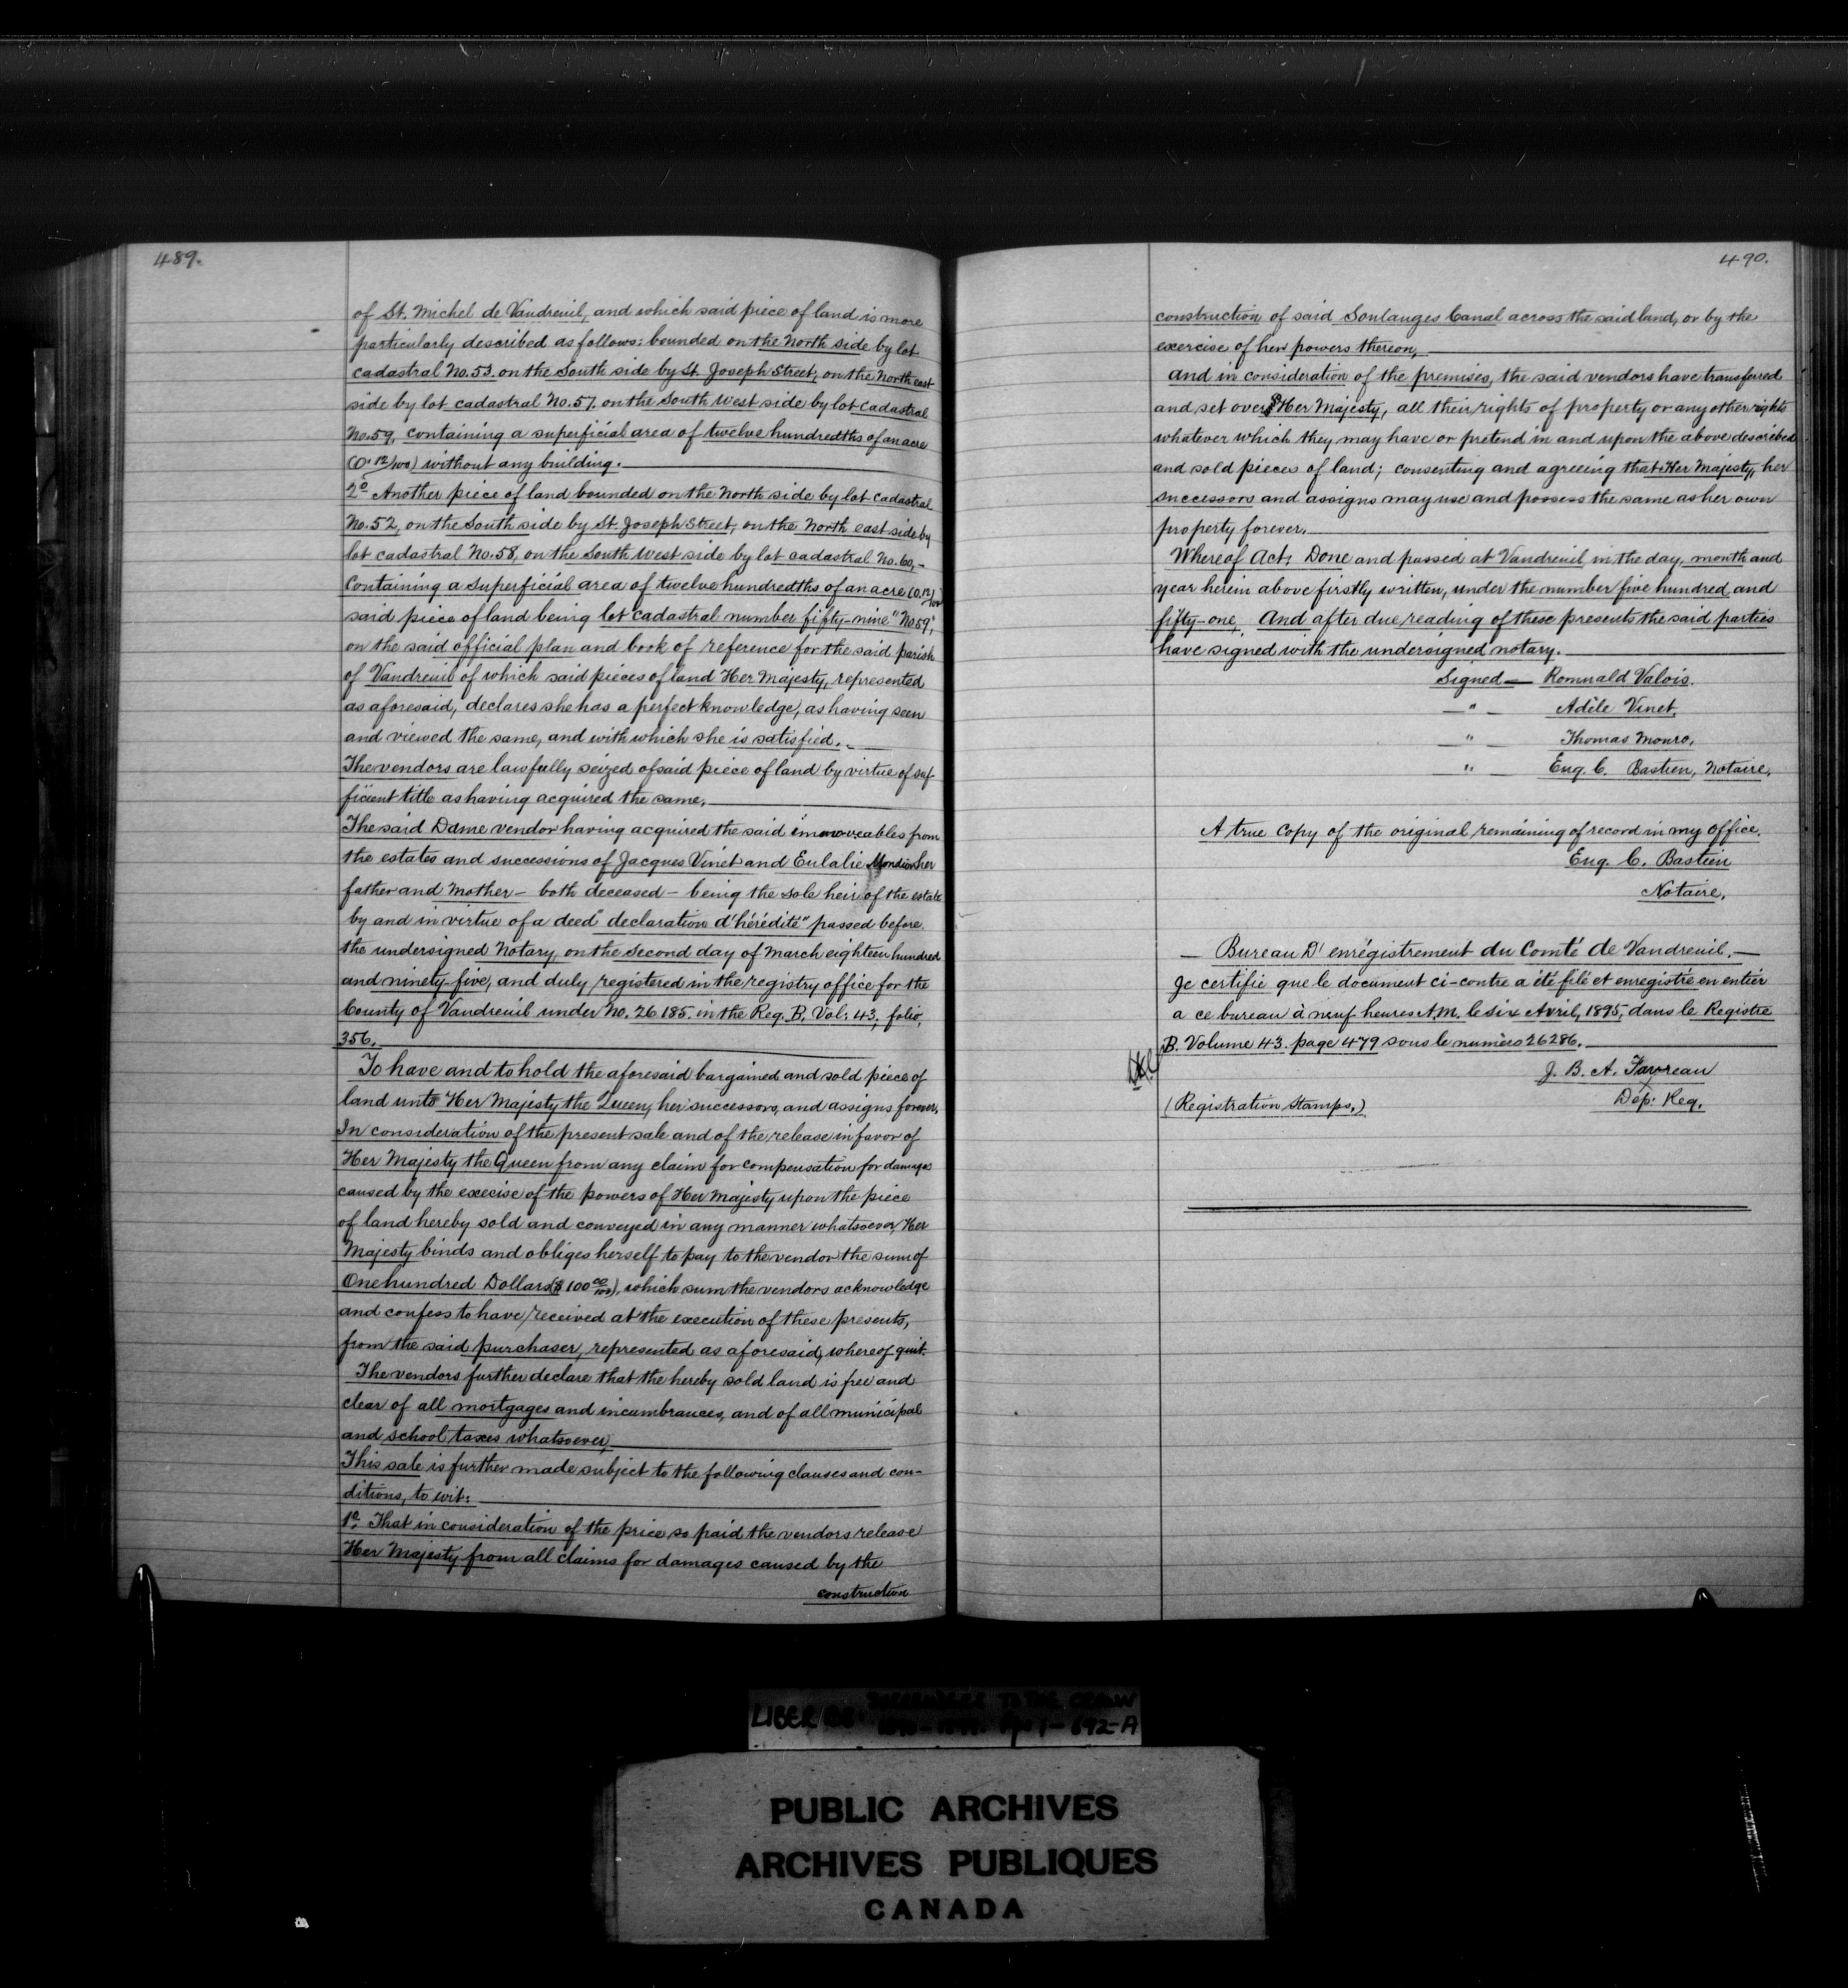 489.
of St. Michel de Vaudreuil, and which said piece of land is more
particularly described as follows: bounded on the North side by lot
cadastral No. 53. on the South side by St. Joseph Street, on the North east
side by lot cadastral No. 57. on the South West side by lot cadastral
No. 59, containing a superficial area of twelve hundredths of an acre
(0. 12/100) without any building.
2o Another piece of land bounded on the North side by lot cadastral
No. 52, on the South side by St. Joseph Street, on the North east side by
lot cadastral No. 58, on the South West side by lot cadastral No. 60,-
Containing a superficial area of twelve hundredths of an acre (0. 12/100)
said piece of land being lot cadastral number fifty-nine "No 59",
on the said official plan and book of reference for the said parish
of Vaudreuil of which said pieces of land Her Majesty, represented
as aforesaid, declares she has a perfect knowledge, as having seen
and viewed the same, and with which she is satisfied.
The vendors are lawfully seized of said piece of land by virtue of suf-
ficient title as having acquired the same.
The said Dame vendor having acquired the said immoveables from
the estates and successions of Jacques Vinet and Eulalie her
father and Mother - both deceased - being the sole heir of the estate
by and in virtue of a deed "declaration d'hérédité" passed before
the undersigned Notary on the second day of March eighteen hundred
and ninety-five, and duly registered in the registry office for the
County of Vaudreuil under No. 26185. in the Reg. B. Vol: 43, folio,
356.
To have and to hold the aforesaid bargained and sold piece of
land unto Her Majesty the Queen, her successors, and assigns forever.
In consideration of the present sale and of the release in favor of
Her Majesty the Queen from any claim for compensation for damages
caused by the execise of the powers of Her Majesty upon the piece
of land hereby sold and conveyed in any manner whatsoever, Her
Majesty binds and obliges herself to pay to the vendor the sum of
One hundred Dollars ($ 100 00/100), which sum the vendors acknowledge
and confess to have received at the execution of these presents,
from the said purchaser, represented as aforesaid, whereof quit.
The vendors further declare that the hereby sold land is free and
clear of all mortgages and incumbrances, and of all municipal
and school taxes whatsoever,
This sale is further made subject to the following clauses and con-
ditions, to wit:
1o. That in consideration of the price so paid the vendors release
Her Majesty from all claims for damages caused by the
construction
490.
construction of said Soulanges Canal across the said land, or by the
exercise of her powers thereon,
And in consideration of the premises, the said vendors have transferred
and set over Her Majesty, all their rights of property or any other rights
whatever which they may have or pretend in and upon the above described
and sold pieces of land; consenting and agreeing that Her Majesty, her
successors and assigns may use and possess the same as her own
property forever.
Whereof Act; Done and passed at Vaudreuil in the day, month and
year herein above firstly written, under the number five hundred and
fifty-one, And after due reading of these presents the said parties
have signed with the undersigned notary.
Signed — Romuald Valois.
— " — Adèle Vinet,
— " — Thomas Monro,
— " — Eug. C. Bastien, Notaire,
A true Copy of the original remaining of record in my office.
Eug. C. Bastien
Notaire,
— Bureau D'enrégistrement du Comté de Vaudreuil. —
Je certifie que le document ci-contre a été filé et enregistré en entier
a ce bureau à neuf heures A.M. le six Avril, 1895, dans le Registre
B. Volume 43. page 479 sous le numéro 26286.
J. B. A. Favreau
Dép: Reg.
(Registration Stamps.)
LIBER TO THE CROWN
692-A
PUBLIC ARCHIVES
ARCHIVES PUBLIQUES
CANADA